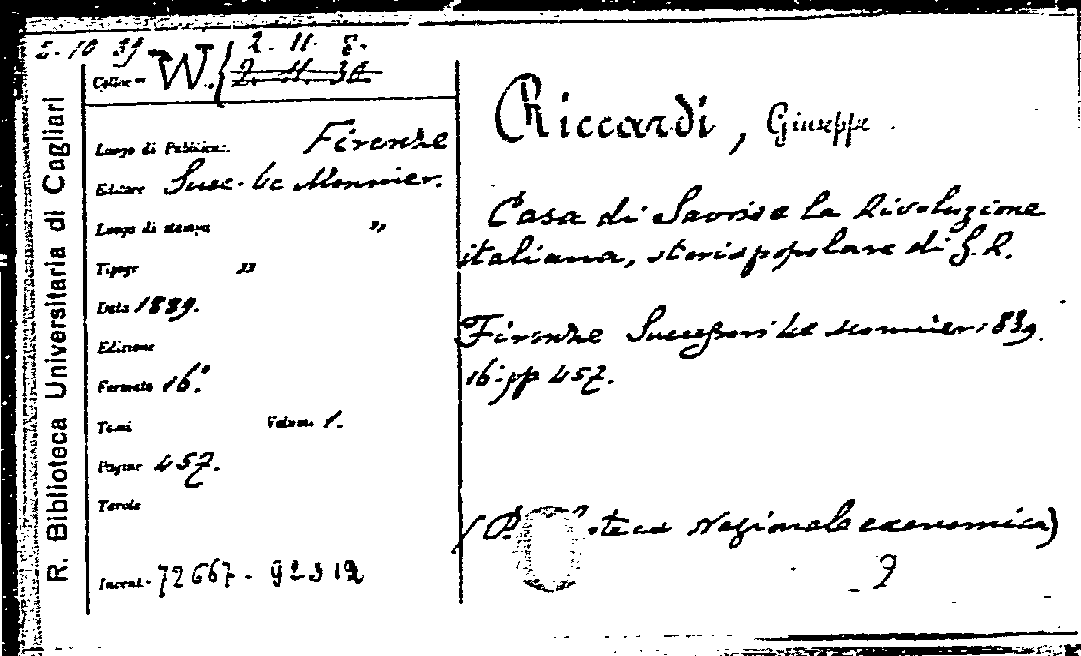 R. Biblioteca Universitaria di Cagliari
5. 10 39
Colloc. W. { 2. 11. 8.
2. 11. 30.
Luogo di Pubblicaz. Firenze
Editore Succ. Le Monnier.
Luogo di stampa "
Tipogr. "
Data 1889.
Edizione
Formato 16.°
Tomi Volumi 1.
Pagine 457.
Tavole
Invent. 72667 -
Riccardi, Giuseppe.
Casa di Savoia e la Rivoluzione
italiana, storia popolare di G. R.
Firenze Successori Le Monnier, 889.
16. pp 457.
Nazionale economica)